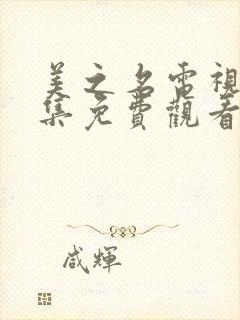 美之名電視
集免費觀看
咸輝